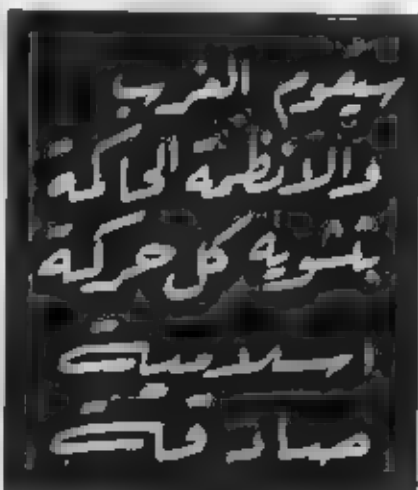 سيقوم الغرب
والانظمة الحاكمة
بتشويه كل حركة
اسلامية
صادقة